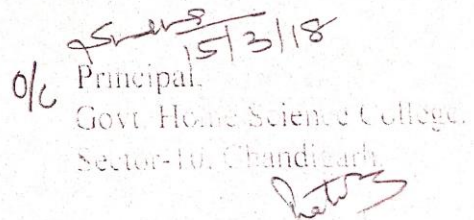 15/3/18
O/c Principal,
Govt. Home Science College,
Sector-10, Chandigarh.